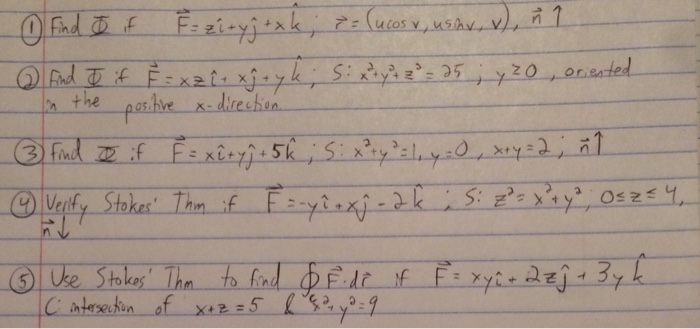 ① Find Φ if F⃗ = zî + yĵ + xk̂ ; r⃗ = (ucosv, usinv, v), n⃗ ↑
② Find Φ if F⃗ = xzî + xĵ + yk̂ ; S: x²+y²+z² = 25 ; y≥0, oriented
in the positive x-direction.
③ Find Φ if F⃗ = xî+yĵ+5k̂ ; S: x²+y²=1, y=0, x+y=2 ; n⃗↑
④ Verify Stokes' Thm if F⃗ = -yî+xĵ-2k̂ ; S: z²=x²+y², 0≤z≤4,
n⃗↓
⑤ Use Stokes' Thm to find ∮F⃗·dr⃗ if F⃗ = xyî + 2zĵ + 3yk̂
C: intersection of x+z=5 & x²+y²=9